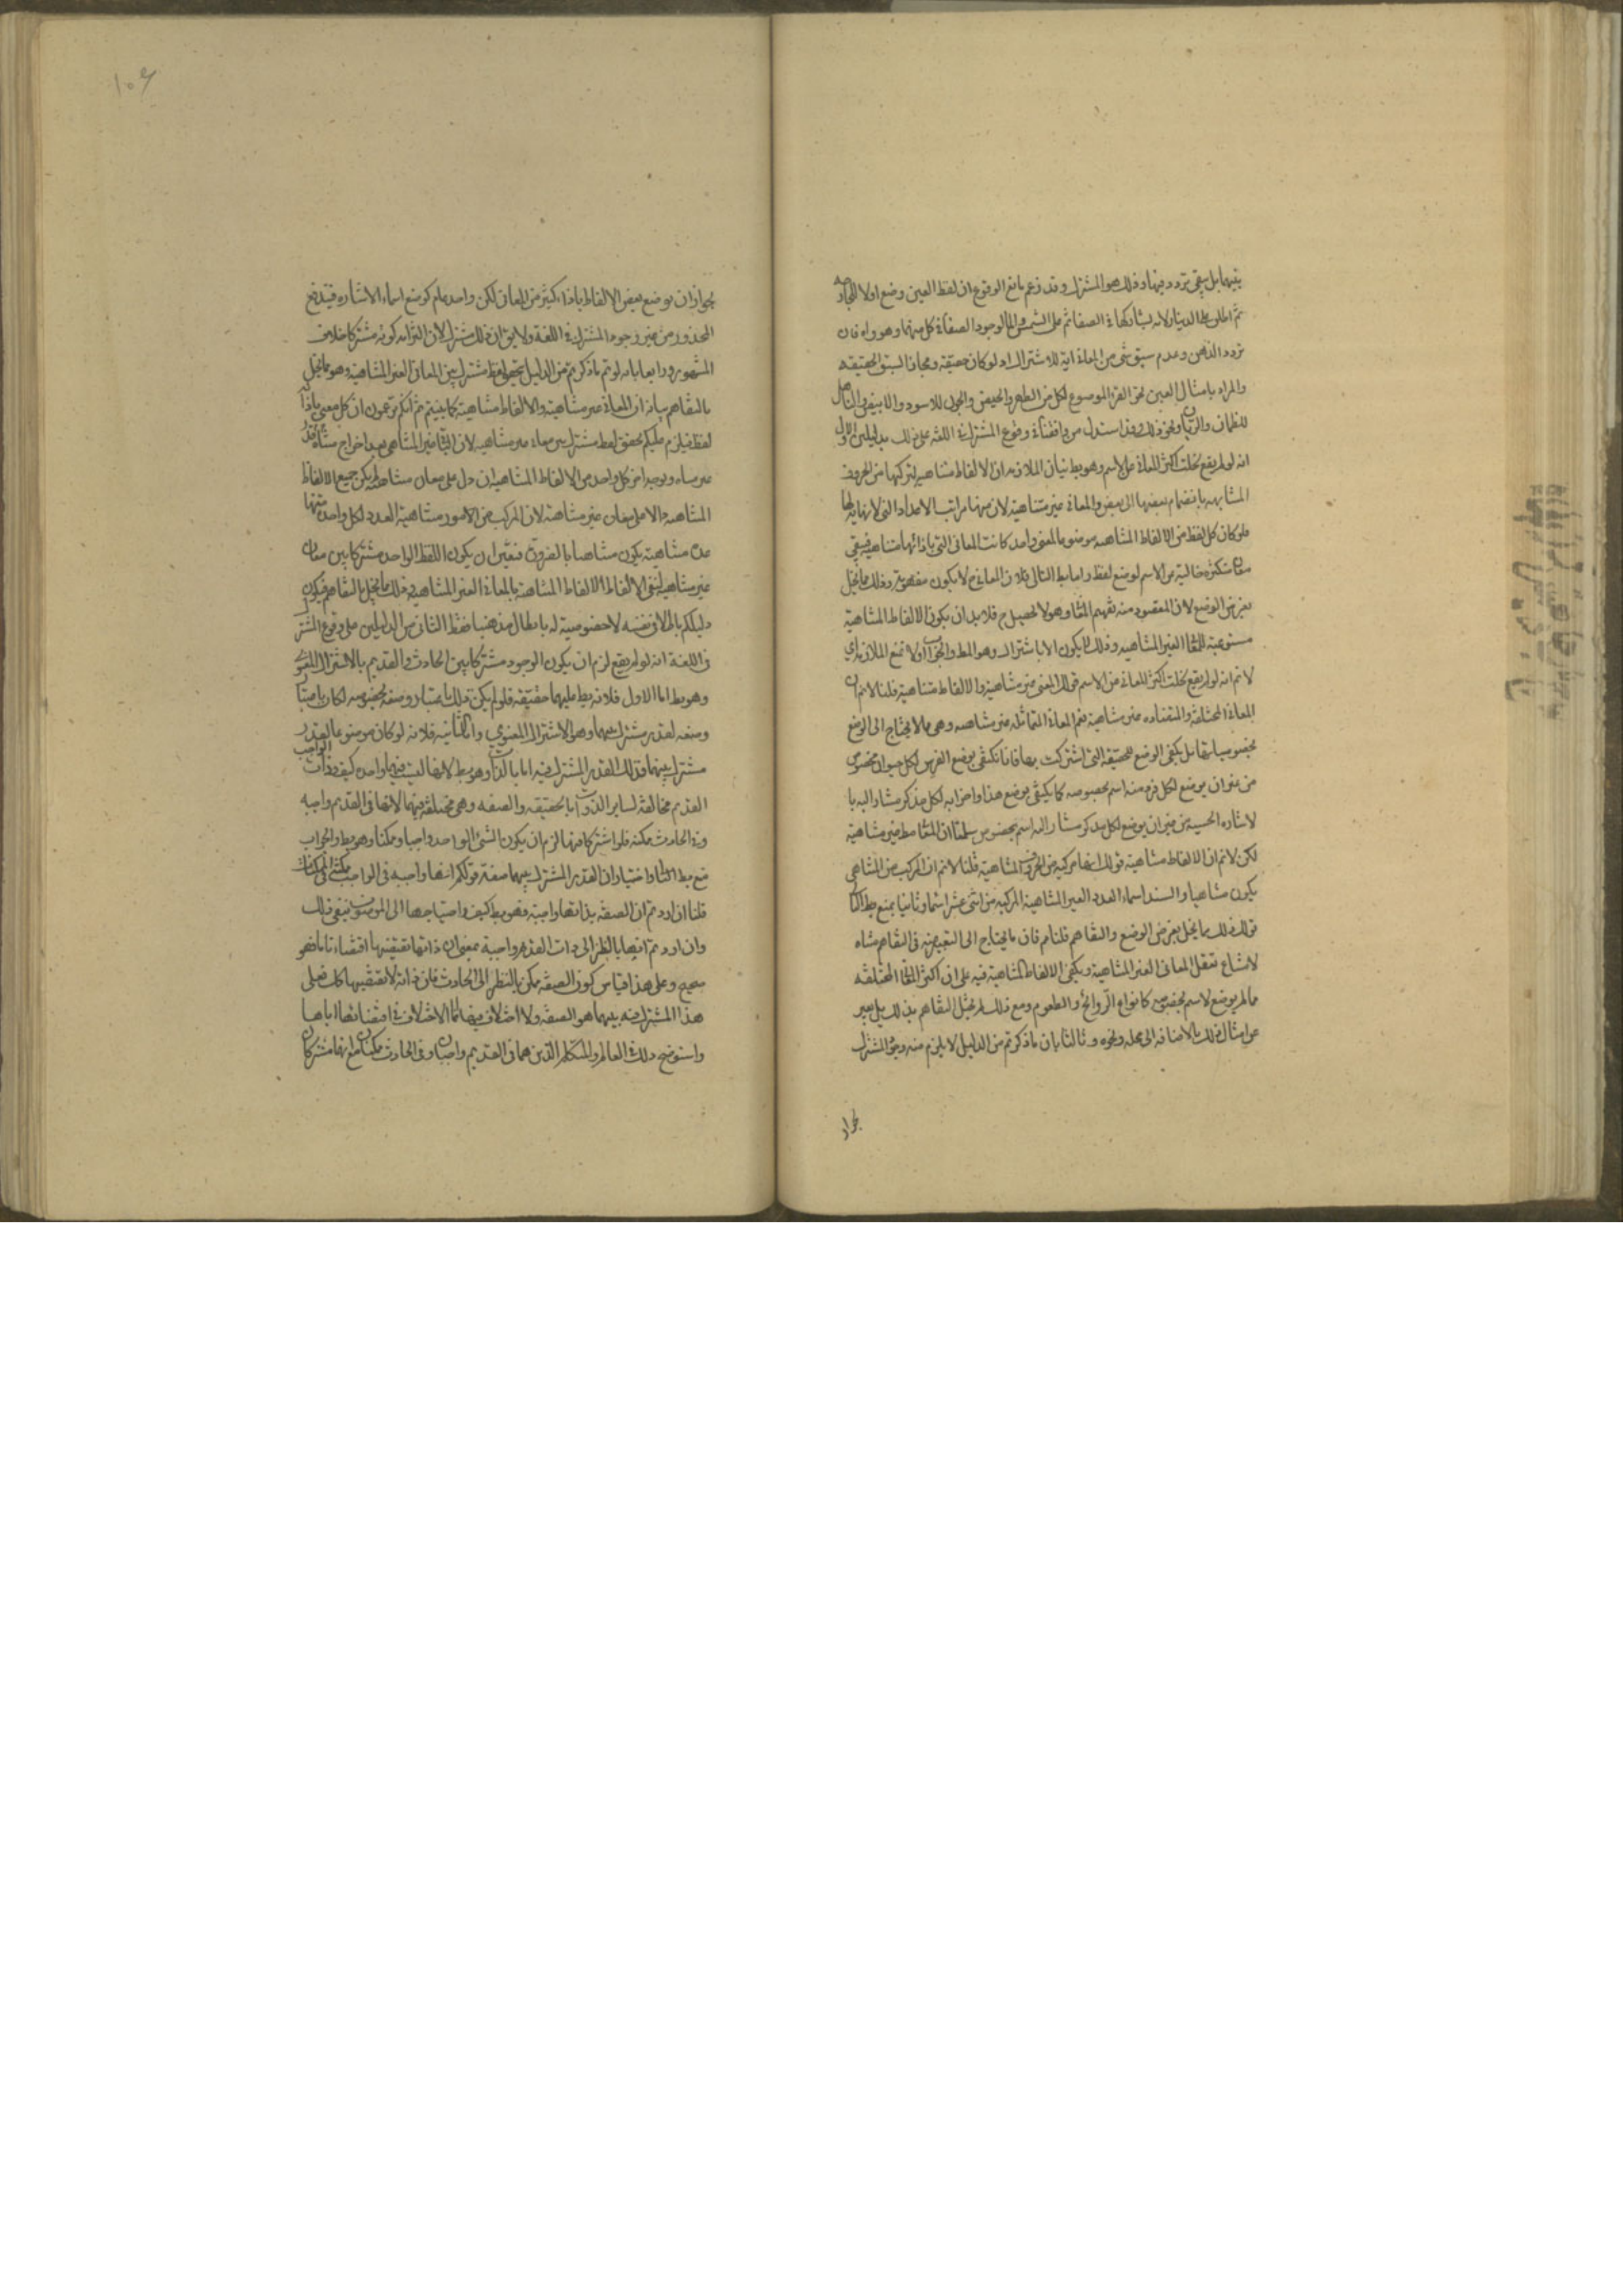 بينهما بل يبقى تردد فيها وذلك هو المشترك وقد زعم مانع الوقوع ان لفظ العين وضع اولا للجارحة
ثم اطلق على الدينار لانه يشاركها في الصفا ثم على الشمس والماء لوجود الصفا في كل منهما وهو واه فان
تردد الذهن وعدم سبق شئ من المعاني اية للاشتراك اذ لو كان حقيقة ومجازا لسبق الحقيقة
والمراد بامثال العين نحو القرء الموضوع لكل من الطهر والحيض والجون للاسود والابيض والناهل
للظمآن والريان ونحو ذلك وقد استدل من وافقنا في وقوع المشترك في اللغة على ذلك بدليلين الاول
انه لو لم يقع لخلت اكثر المعاني عن الاسم وهو بط بيان الملازمة ان الالفاظ متناهية لتركبها من الحروف
المتناهية بانضمام بعضها الى بعض والمعاني غير متناهية لان منها مراتب الاعداد التي لا نهاية لها
فلو كان كل لفظ من الالفاظ المتناهية موضوعا لمعنى واحد كانت المعاني التي بازائها متناهية فيبقى
معان متكثرة خالية من الاسم لوضع لفظ واما بط التالي فلان المعاني ح لا يكون مفهومة وذلك مما يخل
بغرض الوضع لان المقصود منه تفهيم المعاني وهو لا يحصل ح فلا بد ان يكون الالفاظ المتناهية
مستوعبة للمعاني الغير المتناهية وذلك لا يكون الا باشتراك وهو المط والجواب اولا بمنع الملازمة اي
لا نم انه لو لم يقع لخلت اكثر المعاني من الاسم قولك المعنى غير متناهية والالفاظ متناهية قلنا لا نم ان
المعاني المختلفة والمتضادة غير متناهية نعم المعاني المتماثلة غير متناهية وهي مما لا يحتاج الى الوضع
بخصوصياتها بل يكفي الوضع للحقيقة التي اشتركت بها فانا نكتفي بوضع الفرس لكل حيوان مخصوص
من غير ان يوضع لكل فرد منه اسم بخصوصه كما يكتفى بوضع هذا واضرابه لكل مذكر مشار اليه با
لاشارة الحسية من غير ان يوضع لكل مذكر مشار اليه اسم بخصوص سلمنا ان المعاني مط غير متناهية
لكن لا نم ان الالفاظ متناهية قولك انها مركبة من الحروف المتناهية قلنا لا نم ان المركب من المتناهي
يكون متناهيا والسند اسماء العدد الغير المتناهية المركبة من اثنى عشر اسما وثانيا بمنع بط التالي
قولك ذلك مما يخل بغرض الوضع والتفاهم قلنا م فان ما يحتاج الى التعبير عنه في التفاهم متناه
لامتناع تعقل المعاني الغير المتناهية ويكفي الالفاظ المتناهية فيه على ان اكثر المعاني المختلفة
مما لم يوضع لاسم بخصوصه كانواع الروائح والطعوم ومع ذلك لم يختل التفاهم بذلك بل يعبر
عن امثال ذلك بالاضافة الى محله ونحوه وثالثا بان ما ذكرتم من الدليل لا يلزم منه وجود المشترك
لجواز
١٠۶
لجواز ان يوضع بعض الالفاظ بازاء كثير من المعاني لكن واحد عام كوضع اسماء الاشارة فيندفع
المحذور من غير وجود المشترك في اللغة ولا يق ان ذلك مشترك لان التزام كونه مشتركا خلاف
المشهور ورابعا بانه لو تم ما ذكرتم من الدليل تحقق لفظ مشترك بين المعاني الغير المتناهية وهو مما يخل
بالتفاهم بيانه ان المعاني غير متناهية والالفاظ متناهية كما بينتم ثم انكم تزعمون ان كل معنى بازائه
لفظ فيلزم عليكم تحقق لفظ مشترك بين معاني غير متناهية لان الباقي غير المتناهي بعد اخراج متناه
غير متناه ويوجد امر كل واحد من الالفاظ المتناهية ان دل على معان متناهية لم يكن جميع الالفاظ
المتناهية دالا على معان غير متناهية لان المركب من الامور متناهية العدد لكل واحد منها
عدة متناهية يكون متناهيا بالضرورة فتعين ان يكون اللفظ الواحد مشتركا بين معان
غير متناهية ليفي الالفاظ المتناهية بالمعاني الغير المتناهية وذلك مما يخل بالتفاهم فيكون
دليلكم باطلا في نفسه لا خصوصية له بابطال مذهبنا فقط الثاني من الدليلين على وقوع المشترك
في اللغة انه لو لم يقع لزم ان يكون الوجود مشتركا بين الحادث والقديم بالاشتراك المعنوي
وهو بط اما الاول فلانه يط عليهما حقيقة فلو لم يكن ذلك باعتبار وضعه بخصوصه لكان باعتبار
وضعه لقدر مشترك بينهما وهو الاشتراك المعنوي واما الثانية فلانه لو كان موضوعا لقدر
مشترك بينهما فذلك القدر المشترك فيه اما بالذات وهو بط لانها ليست فيهما واحدة كيف وذات الواجب
القديم مخالفة لساير الذوات اما بالحقيقة والصفة وهي مختلفة فيهما لانها في القديم واجبة
وفي الحادث ممكنة فلو اشتركا فيها لزم ان يكون الشئ الواحد واجبا وممكنا وهو بط والجواب
منع بط التالي واختيار ان القدر المشترك بينهما صفة قولكم انها واجبة في الواجب ممكنة في الممكنات
قلنا ان اردتم ان الصفة بذاتها واجبة فهو بط كيف واحتياجها الى الموصوف ينفي ذلك
وان اردتم انها بالنظر الى ذات القديم واجبة بمعنى ان ذاتها تقتضيها اقتضاء تاما فهو
صحيح وعلى هذا قياس كون الصفة ممكن بالنظر الى الحادث فان ذاته لا تقتضيها كل فعلى
هذا المشترك فيه بينهما هو الصفة ولا اختلاف فيها انما الاختلاف في اقتضائها اياها
واستوضح ذلك في العالم والمتكلم الذين هما في القديم واجبان وفي الحادث ممكنان مع انهما مشتركان